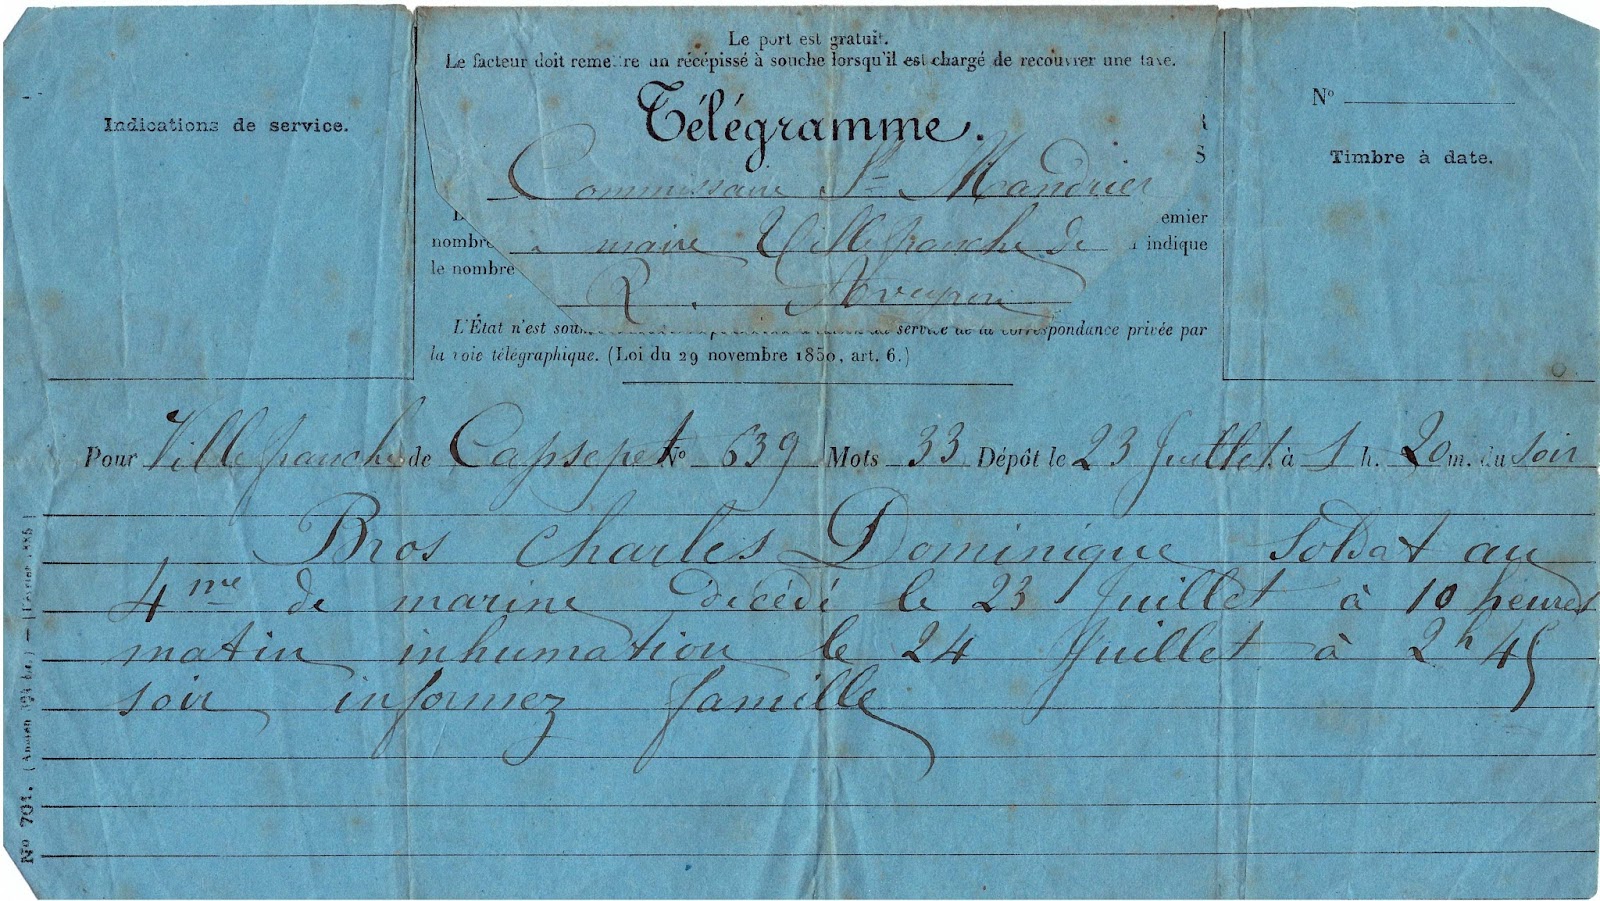 Le port est gratuit.
Le facteur doit remettre un récépissé à souche lorsqu'il est chargé de recouvrer une taxe.
Indications de service.
Télégramme.
Nº
Timbre à date.
Commissaire St Mandrier
à maire Villefranche de
R. Aveyron
emier
nombre
indique
le nombre
L'État n'est soumis service de la correspondance privée par
la voie télégraphique. (Loi du 29 novembre 1850, art. 6.)
Pour Villefranche de Capsepet Nº 639 Mots 33 Dépôt le 23 Juillet à 1 h. 20 m. du soir
Bros Charles Dominique Soldat au
4me de marine décédé le 23 Juillet à 10 heures
matin inhumation le 24 Juillet à 2h 45
soir informez famille
Nº 701.